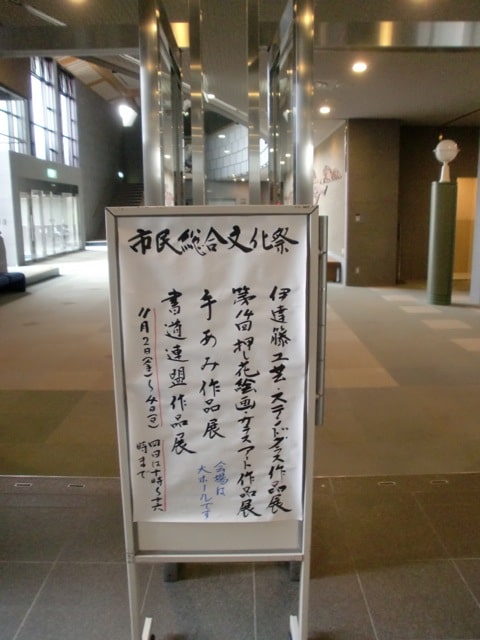 市民総合文化祭
伊達籐工芸 ステンドグラス作品展
第14回 押し花絵画・ガラスアート作品展
手あみ作品展
会場は
大ホールです
書道連盟作品展
11月2日(金)〜4日(日)
時まで